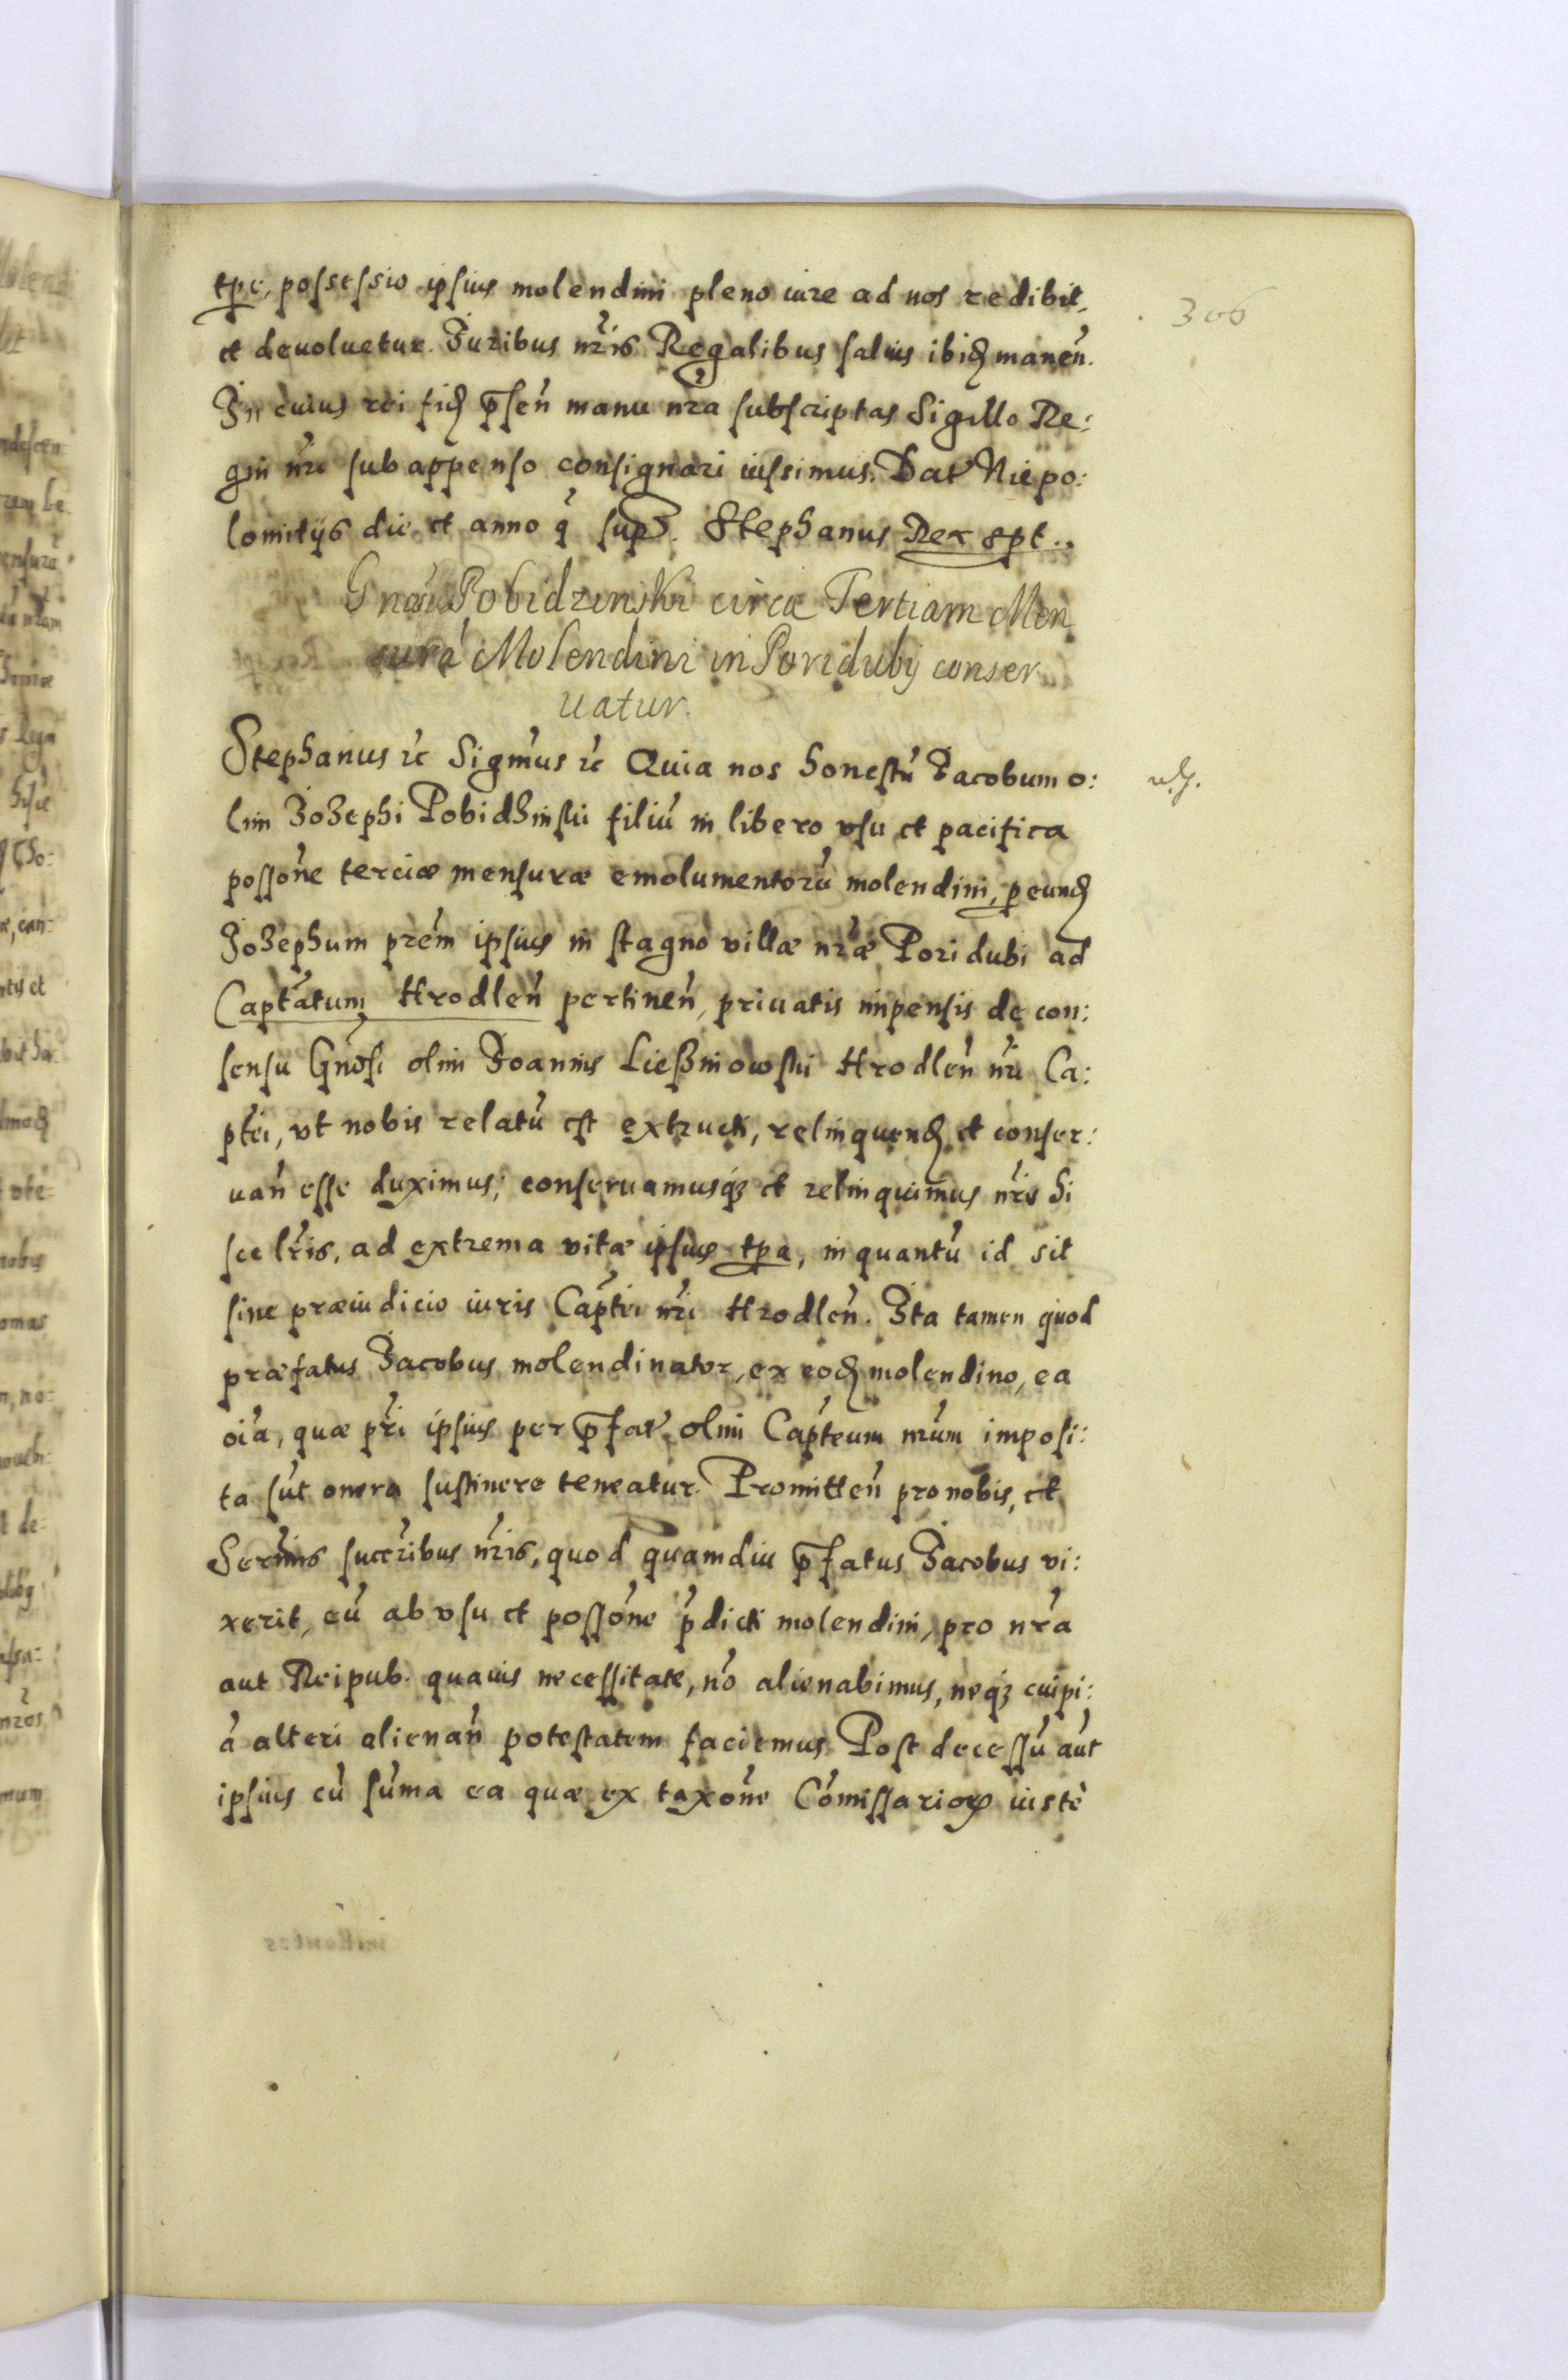 tpe, possessio ipsius molendini pleno iure ad nos redibit,
et devoluetur. Iuribus nris Regalibus salvis ibid manen.
In cuius rei fid psen manu nra subscriptas Sigillo Re:
gni nri sub appenso consignari iussimus. Dat Niepo:
lomitijs die et anno q sup. Stephanus Rex spt..
306
Pobidzinski circa Tertiam Men
surã Molendini in Poridubÿ conser
uatur.
Stephanus rc Sigmus rc Quia nos honestũ Jacobum o:
lim Jozephi Pobidzinskii filiũ in libero vsu et pacifica
possone terciæ mensuræ emolumentorũ molendini, p eund
Jozephum prem ipsius in stagno villæ nræ Poridubi ad
Captatum Hrodlen pertinen, priuatis impensis de con:
sensu Gnosi olim Joannis Liesniowskii Hrodlen nri Ca:
ptei, vt nobis relatũ est extructi, relinquend et conser:
uan esse duximus; conseruamusq3 et relinquimus nris hi
sce lris, ad extrema vitæ ipsius tpa, in quantũ id sit
sine præiudicio iuris Captei nri Hrodlen. Ita tamen quod
præfatus Jacobus molendinator, ex eod molendino, ea
oia, quæ pri ipsius per pfat olim Capteum nrum imposi:
ta sut onera sustinere teneatur. Promitten pro nobis, et
Sermis succribus nris, quod quamdiu pfatus Jacobus vi:
xerit, eũ ab vsu et possone pdicti molendini, pro nra
aut Reipub. quauis necessitate, nõ alienabimus, neq3 cuipi:
ã alteri alienan potestatem faciemus. Post decessũ aut
ipsius cũ suma ea quæ ex taxone Comissarior iustè